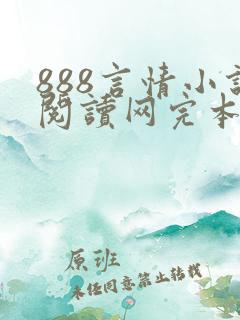 888言情小說
閱讀网完本
原班
未经同意禁止转载